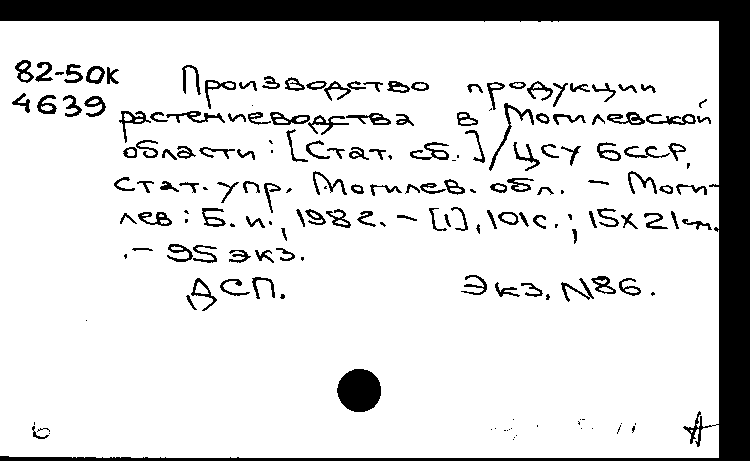 82-50к Производство продукции
4639 растениеводства в Могилевской
области: [Стат. сб.] / ЦСУ БССР,
стат. упр. Могилев. обл. – Моги-
лев: Б. и., 1982. – [1], 101 с.; 15х21 см.
. – 95 экз.
ДСП. Экз. N86.
б А